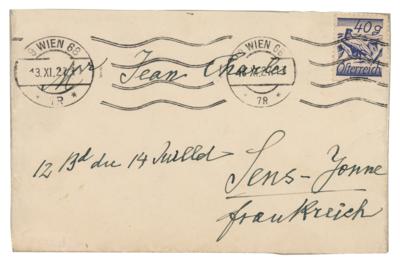 9 WIEN 66
13.XI.2
* 7R *
9 WIEN 66
XI.2
* 7R *
40g
Österreich
Mr Jean Charles
12 Bd du 14 Juilld
Sens-Yonne
frankreich